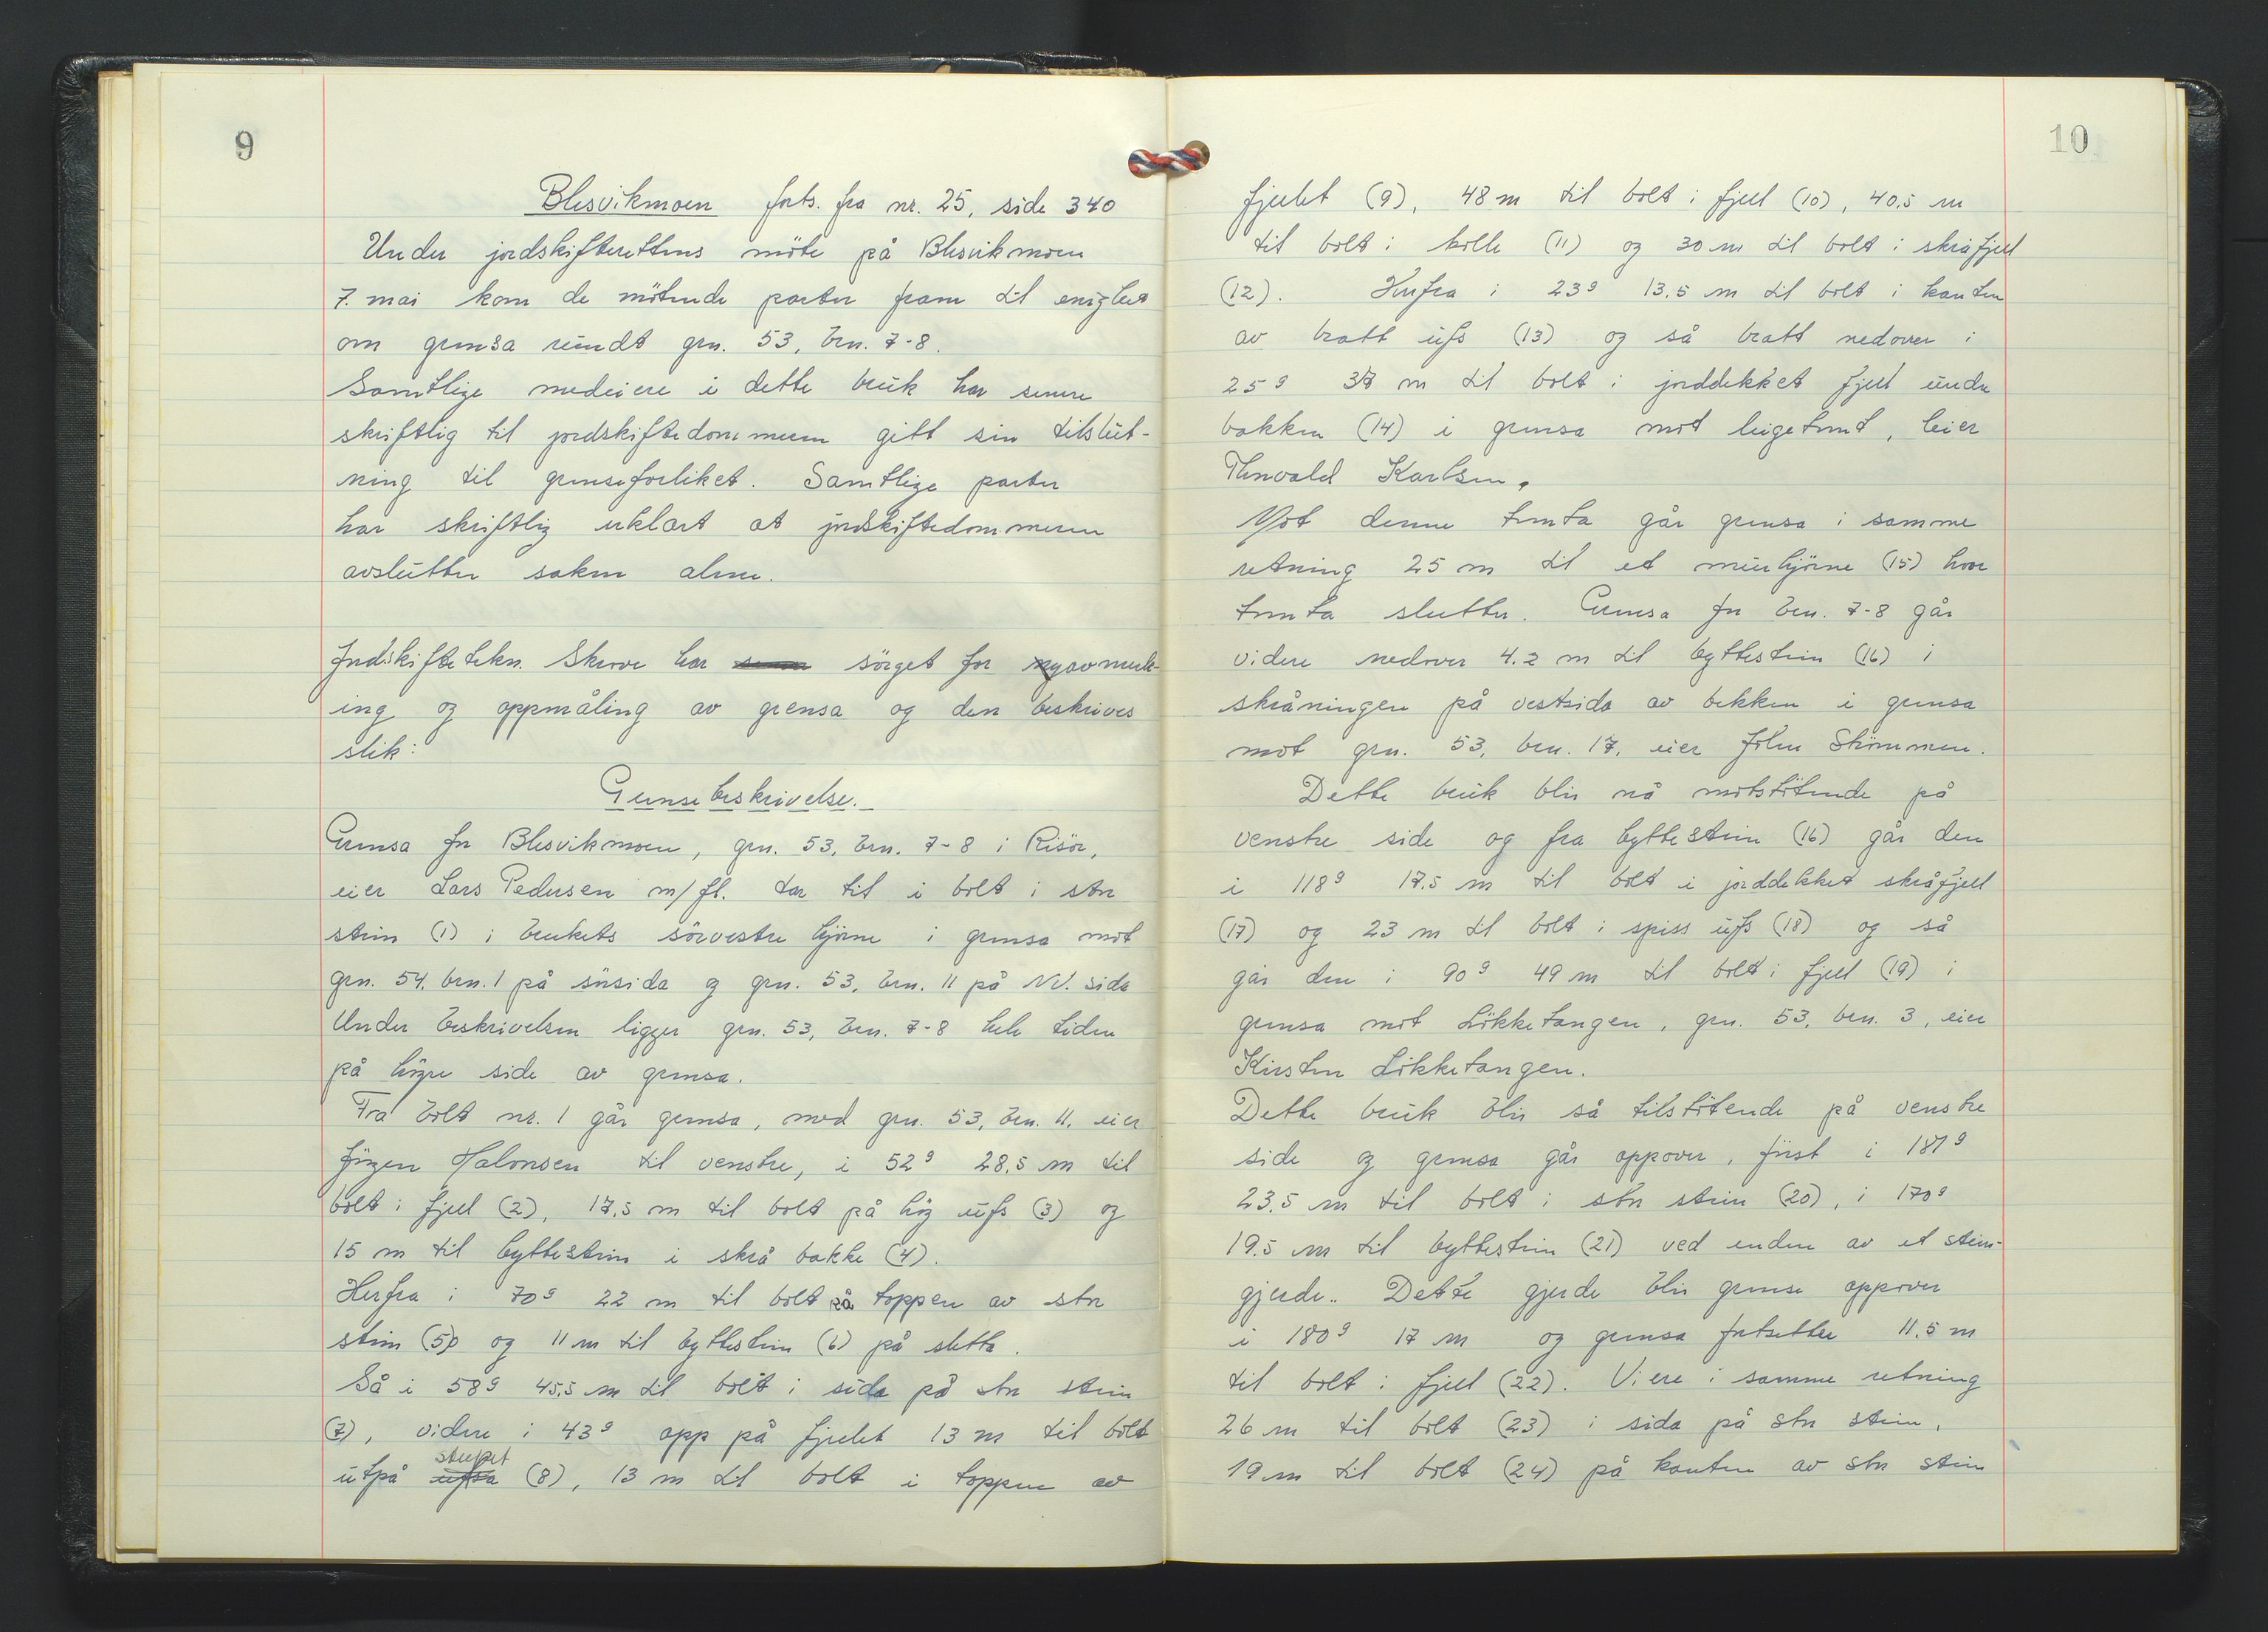 9
Blesvikmoen forts. fra nr. 25, side 340
Under jordskifterettens möte på Blesvikmoen
7. mai kom de mötende parter fram til enighet
om grensa rundt grn. 53, brn. 7-8.
Samtlige medeiere i dette bruk har senere
skriftlig til jordskiftedommeren gitt sin tilslut-
ning til grenseforliket. Samtlige parter
har skriftlig erklært at jordskiftedommeren
avslutter saken alene.
Jordskiftetekn. Skrove har sörget for avmerk-
ing og oppmåling av grensa og den beskrives
slik:
Grensebeskrivelse.
Grensa for Blesvikmoen, grn. 53, brn. 7-8 i Risör,
eier Lars Pedersen m/fl. tar til i bolt i stor
stein (1) i brukets sörvestre hjörne i grensa mot
grn. 54. brn. 1 på sörsida og grn. 53, brn. 11 på NV. sida
Under beskrivelsen ligger grn. 53, brn. 7-8 hele tiden
på högre side av grensa.
Fra bolt nr. 1 går grensa, med grn. 53, brn. 11, eier
Jörgen Halvorsen til venstre, i 52g 28,5 m til
bolt i fjell (2), 17,5 m til bolt på hög ufs (3) og
15 m til byttestein i skrå bakke (4).
Herfra i 70g 22 m til bolt på toppen av stor
stein (5) og 11 m til byttestein (6) på sletta.
Så i 58g 45,5 m til bolt i sida på stor stein
(7), videre i 43g opp på fjellet 13 m til bolt
utpå ufsa stupet (8), 13 m til bolt i toppen av
10
fjellet (9), 48 m til bolt i fjell (10), 40,5 m
til bolt i kolle (11) og 30 m til bolt i skråfjell
(12). Herfra i 23g 13,5 m til bolt i kanten
av bratt ufs (13) og så bratt nedover i
25g 37 m til bolt i jorddekket fjell under
bakken (14) i grensa mot leigetomt, leier
Thorvald Karlsen.
Mot denne tomta går grensa i samme
retning 25 m til et murhjörne (15) hvor
tomta slutter. Grensa for brn. 7-8 går
videre nedover 4.2 m til byttestein (16) i
skråningen på vestsida av bekken i grensa
mot grn. 53, brn. 17, eier John Strömmen.
Dette bruk blir nå motstötende på
venstre side og fra byttestein (16) går den
i 118g 17,5 m til bolt i jorddekket skråfjell
(17) og 23 m til bolt i spiss ufs (18) og så
går den i 90g 49 m til bolt i fjell (19) i
grensa mot Lökketangen, grn. 53, brn. 3, eier
Kirsten Lökketangen.
Dette bruk blir så tilstötende på venstre
side og grensa går oppover, först i 187g
23,5 m til bolt i stor stein (20), i 170g
19,5 m til byttestein (21) ved enden av et stein-
gjerde. Dette gjerde blir grense oppover
i 180g 17 m og grensa fortsetter 11,5 m
til bolt i fjell (22). Viere i samme retning
26 m til bolt (23) i sida på stor stein,
19 m til bolt (24) på kanten av stor stein